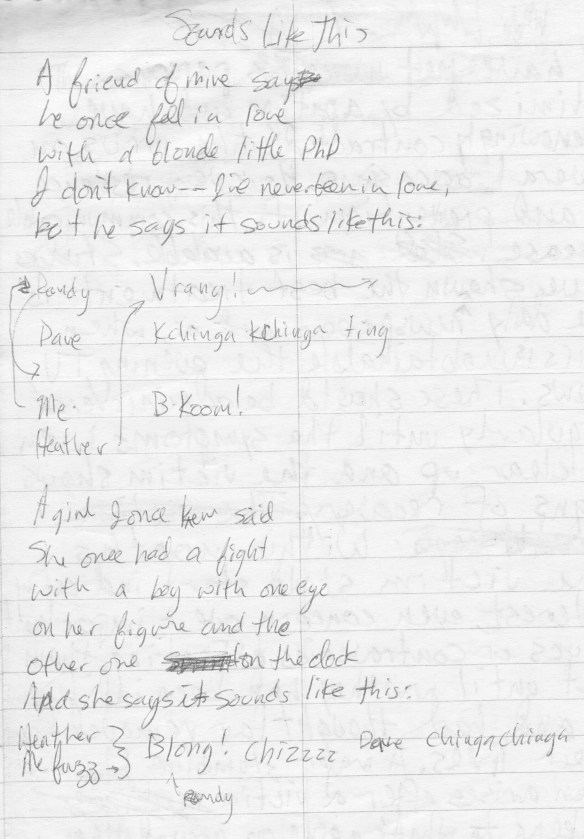 Sounds Like This
A friend of mine says
he once fell in love
with a blonde little PhD
I dont know-- I've never been in love,
but he says it sounds like this:
Randy Vrang!
Dave Kchinga Kchinga ting
Me. B-Koom!
Heather
A girl I once knew said
She once had a fight
with a boy with one eye
on her figure and the
other one on the clock
And she says it sounds like this:
Heather
Me fuzz → } Blong! Chizzzz Dave Chinga Chinga
Randy